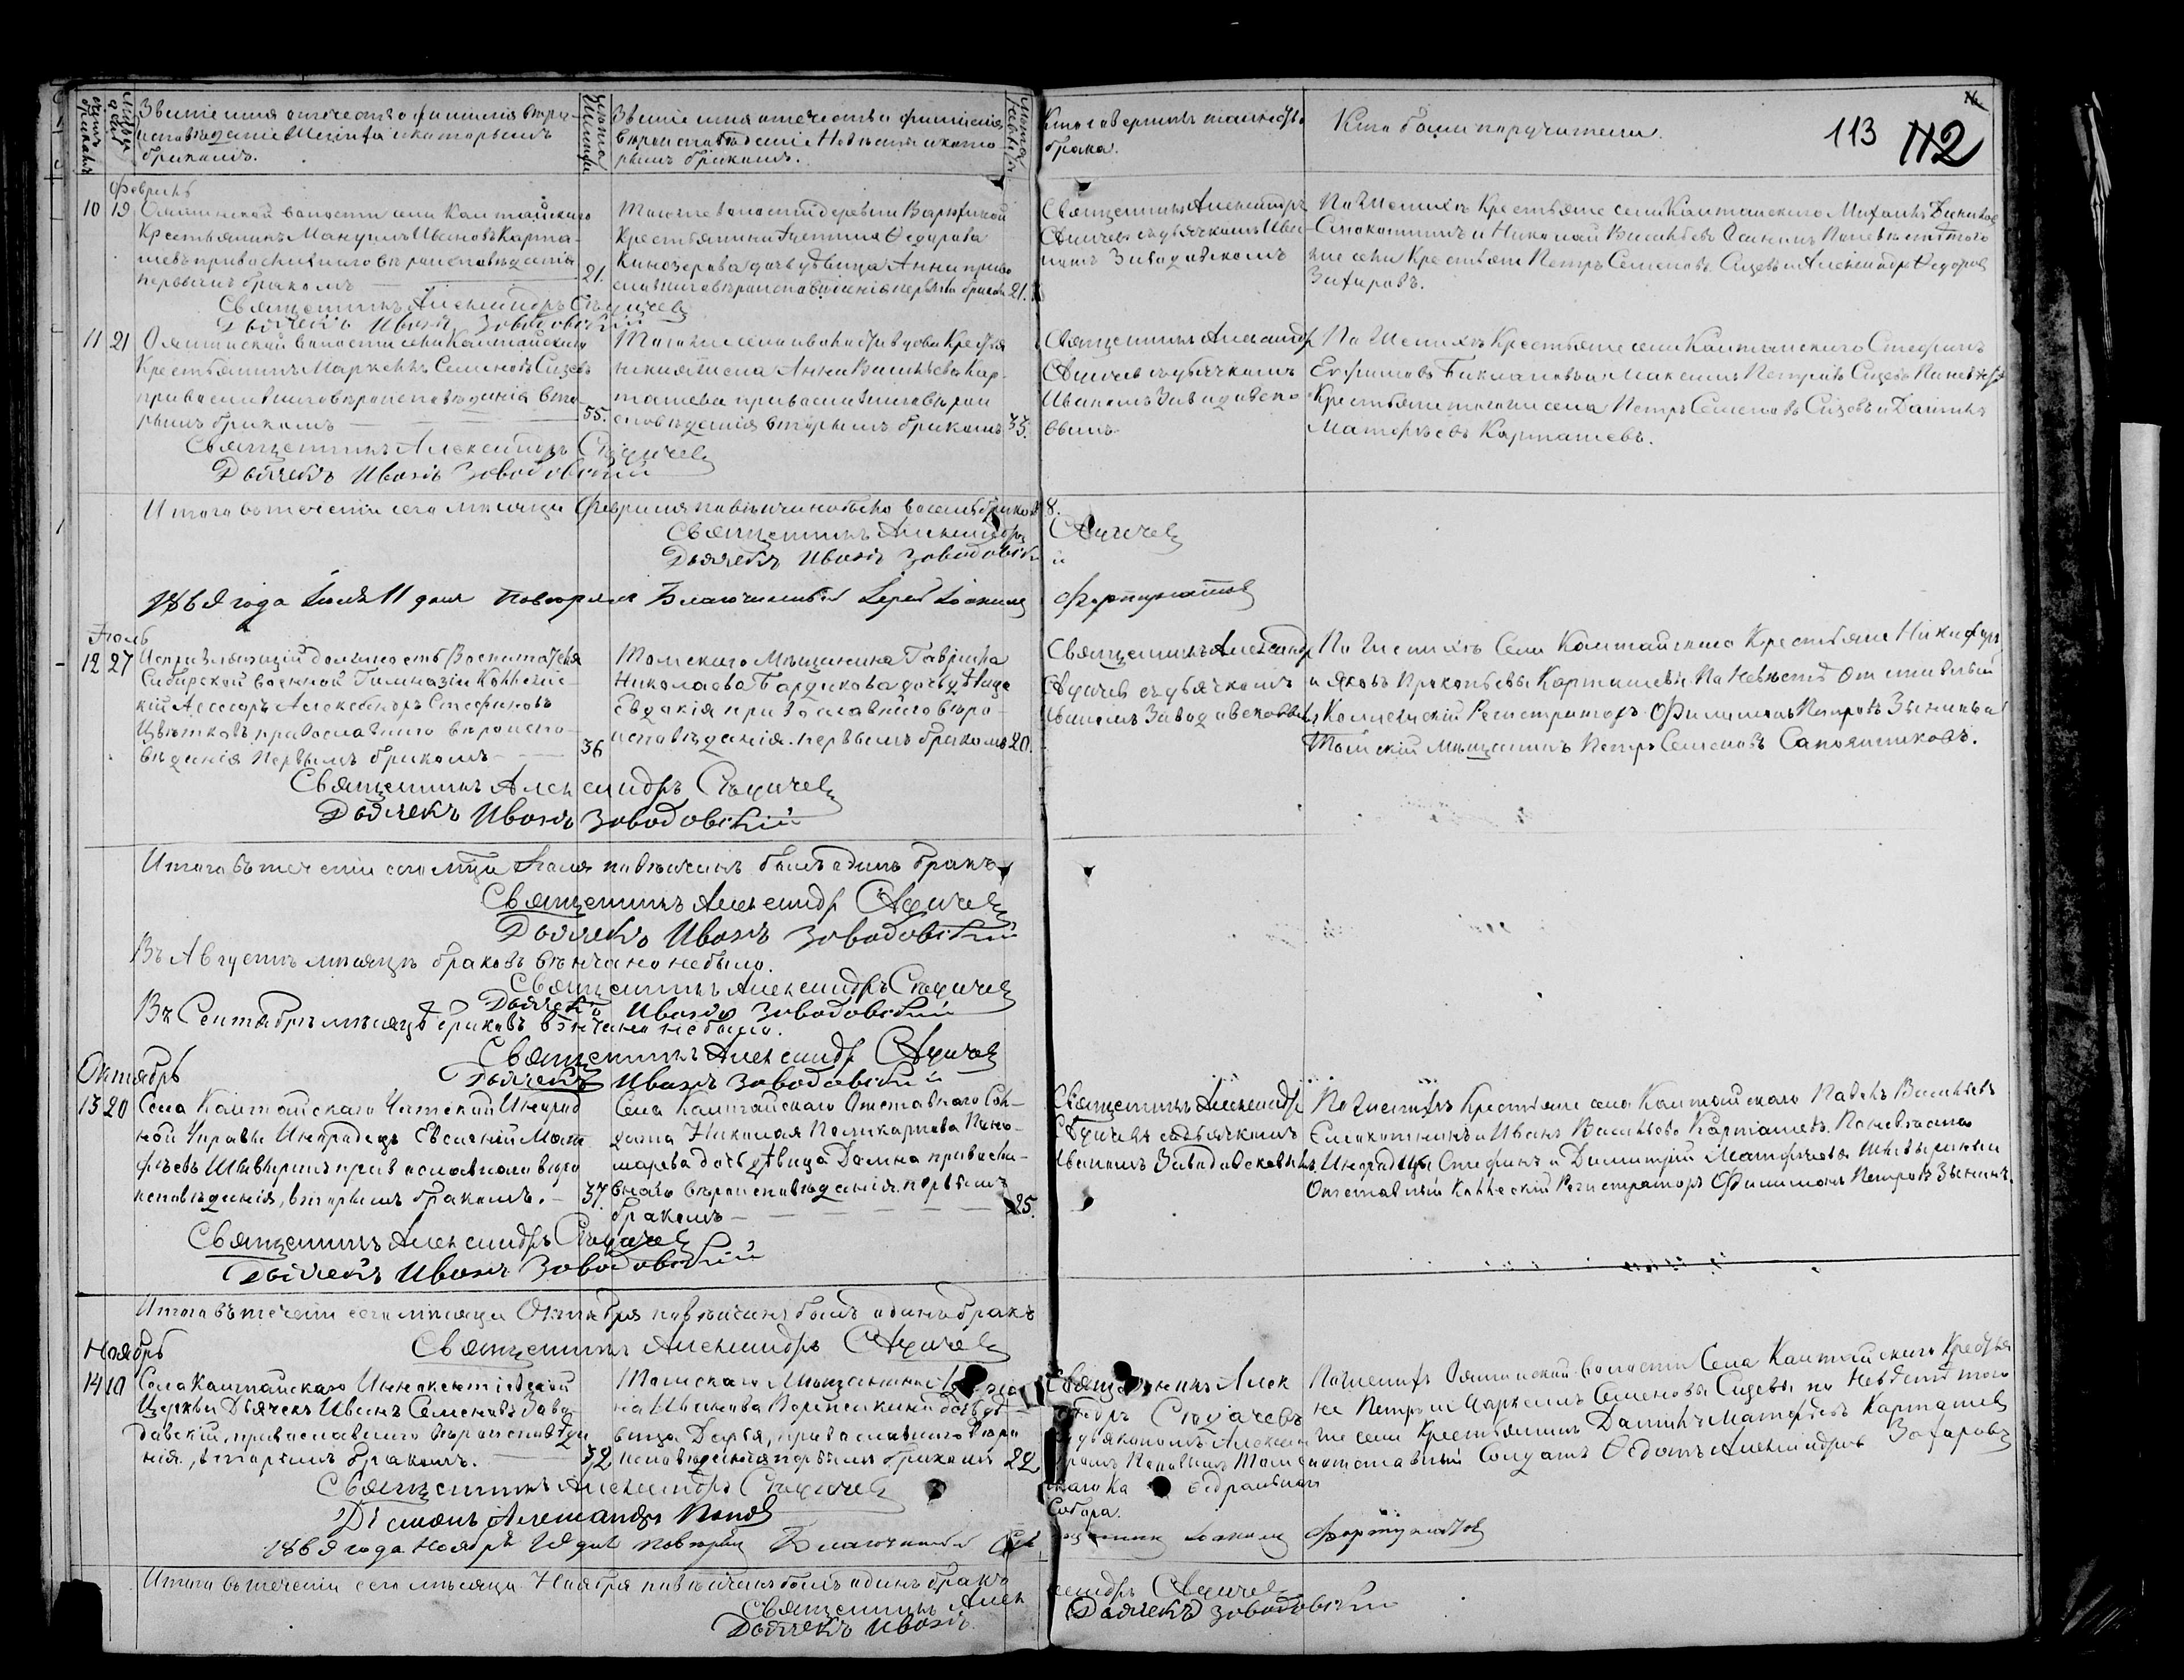 113 112
Званіе имя отчество фамилія и вѣро
исповѣданіе Жениха и которымъ
бракомъ.
Званіе имя отечество и фамилія
вѣроисповѣданіе Невѣсты и кото
рымъ бракомъ.
Кто совершилъ таинство
брака.
Кто были поручители.
Февраль
10 19
крестьянинъ Мануилъ Ивановъ Карта-
шевъ православнаго вѣроисповѣданія
первымъ бракомъ 21.
Тоже волости деревни
крестьянина Ѳедорова
дочь дѣвица Анна право
славнаго вѣроисповѣданія первымъ бракомъ 21.
Священникъ Александръ
съ дьячкомъ Ива-
номъ Заводовскомъ
По Женихѣ Крестьяне села Калтайскаго
и Николай Васильевъ По невѣстѣ того
же села Крестьяне Петръ Семеновъ Сизевъ и Александръ Ѳедоровъ
Захаровъ.
Священникъ Александръ
Дьячекъ Иванъ Заводовскій
11 21
волости села Калтайскаго
Крестьянинъ Маркелъ Семеновъ Сизевъ
православнаго вѣроисповѣданія вто-
рымъ бракомъ 55.
Того же села вдова Крестья
Анна Васильева Кар-
ташева православнаго вѣрои
сповѣданія вторымъ бракомъ 35.
Священникъ Александръ
съ дьячкомъ
Иваномъ Заводовско
вымъ
По Женихѣ Крестьяне села Калтайскаго Стефанъ
Ефимовъ и Максимъ Петровъ Сизевъ По невѣстѣ
Крестьяне того же села Петръ Семеновъ Сизовъ и Данилъ
Матвѣевъ Карташевъ.
Священникъ Александръ
Дьячекъ Иванъ Заводовскій
Итого въ теченіи сего мѣсяца Февраля повѣнчано было восемь браковъ 8.
Священникъ Александръ
Дьячекъ Иванъ Заводовскій
1869 года Іюля 11 дня повѣрялъ Благочинный Іерей Іоаннъ Фортунатовъ
Іюль
12 27 Исправляющій должность Воспитателя
Сибирской военной Гимназіи Коллежс-
кій Асессоръ Александръ Стефановъ
Цвѣтковъ православнаго вѣроиспо-
вѣданія первымъ бракомъ 36
Томскаго Мѣщанина Гавріила
Николаева дочь дѣвица
Евдокія православнаго вѣро-
исповѣданія первымъ бракомъ 20.
Священникъ Александръ
съ дьячкомъ
Иваномъ Заводовскимъ
По Женихѣ Села Калтайскаго Крестьяне Никифоръ
и Яковъ Прокопьевы Карташевы. По Невѣстѣ Отставный
Коллежскій Регистраторъ Филимонъ Петровъ Зыкинъ и
Томскій мѣщанинъ Петръ Семеновъ Сапожниковъ.
Священникъ Александръ
Дьячекъ Иванъ Заводовскій
Итого въ теченіи сего мѣсяца Іюля повѣнчанъ былъ одинъ бракъ
Священникъ Александръ
Дьячекъ Иванъ Заводовскій
Въ Августѣ мѣсяцѣ браковъ вѣнчано небыло.
Священникъ Александръ
Дьячекъ Иванъ Заводовскій
Въ Сентябрѣ мѣсяцѣ браковъ вѣнчано небыло.
Священникъ Александръ
Дьячекъ Иванъ Заводовскій
Октябрь
13 20 Села Калтайскаго Инород
ной Управы Инородецъ Евсевій Мат
фѣевъ православнаго вѣро
исповѣданія, вторымъ бракомъ. 37.
Села Калтайскаго Отставнаго Сол-
дата Николая Поликарпова Поно-
марева дочь дѣвица Домна правосла-
внаго вѣроисповѣданія первымъ
бракомъ 25.
Священникъ Александръ
съ дьячкомъ
Иваномъ Заводовскимъ
По Женихѣ Крестьяне села Калтайскаго Павелъ Васильевъ
и Иванъ Васильевъ Карташевъ. По невѣстѣ
Инородцы Стефанъ и Димитрій Матфѣевы
Отставный Коллежскій Регистраторъ Филимонъ Петровъ Зыкинъ.
Священникъ Александръ
Дьячекъ Иванъ Заводовскій
Итого въ теченіи сего мѣсяца Октября повѣнчанъ былъ одинъ бракъ
Священникъ Александръ
Ноябрь
14 10 Села Калтайскаго Иннокентіевской
Церкви Дьячекъ Иванъ Семеновъ Заво-
довскій, православнаго вѣроисповѣда
нія, вторымъ бракомъ. 32
Томскаго Мѣщанина
Иванова дочь дѣ-
вица Дарья, православнаго вѣро
исповѣданія первымъ бракомъ 22
Священникъ Алек
сандръ
съ дьякономъ Алексан
дромъ Поповымъ Томс
каго Ка едральнаго
Собора.
По Женихѣ волости Села Калтайскаго Крестья
не Петръ и Маркелъ Семеновы Сизевы по Невѣстѣ того
же села Крестьянинъ Данилъ Матфѣевъ Карташевъ
и отставный Солдатъ Ѳедотъ Александровъ Захаровъ
Священникъ Александръ
Діаконъ Александръ Поповъ
1869 года Ноября дня повѣрялъ Благочинный Священникъ Іоаннъ Фортунатовъ
Итого въ теченіи сего мѣсяца Ноября повѣнчанъ былъ одинъ бракъ
Священникъ Александръ
Дьячекъ Иванъ Заводовскій